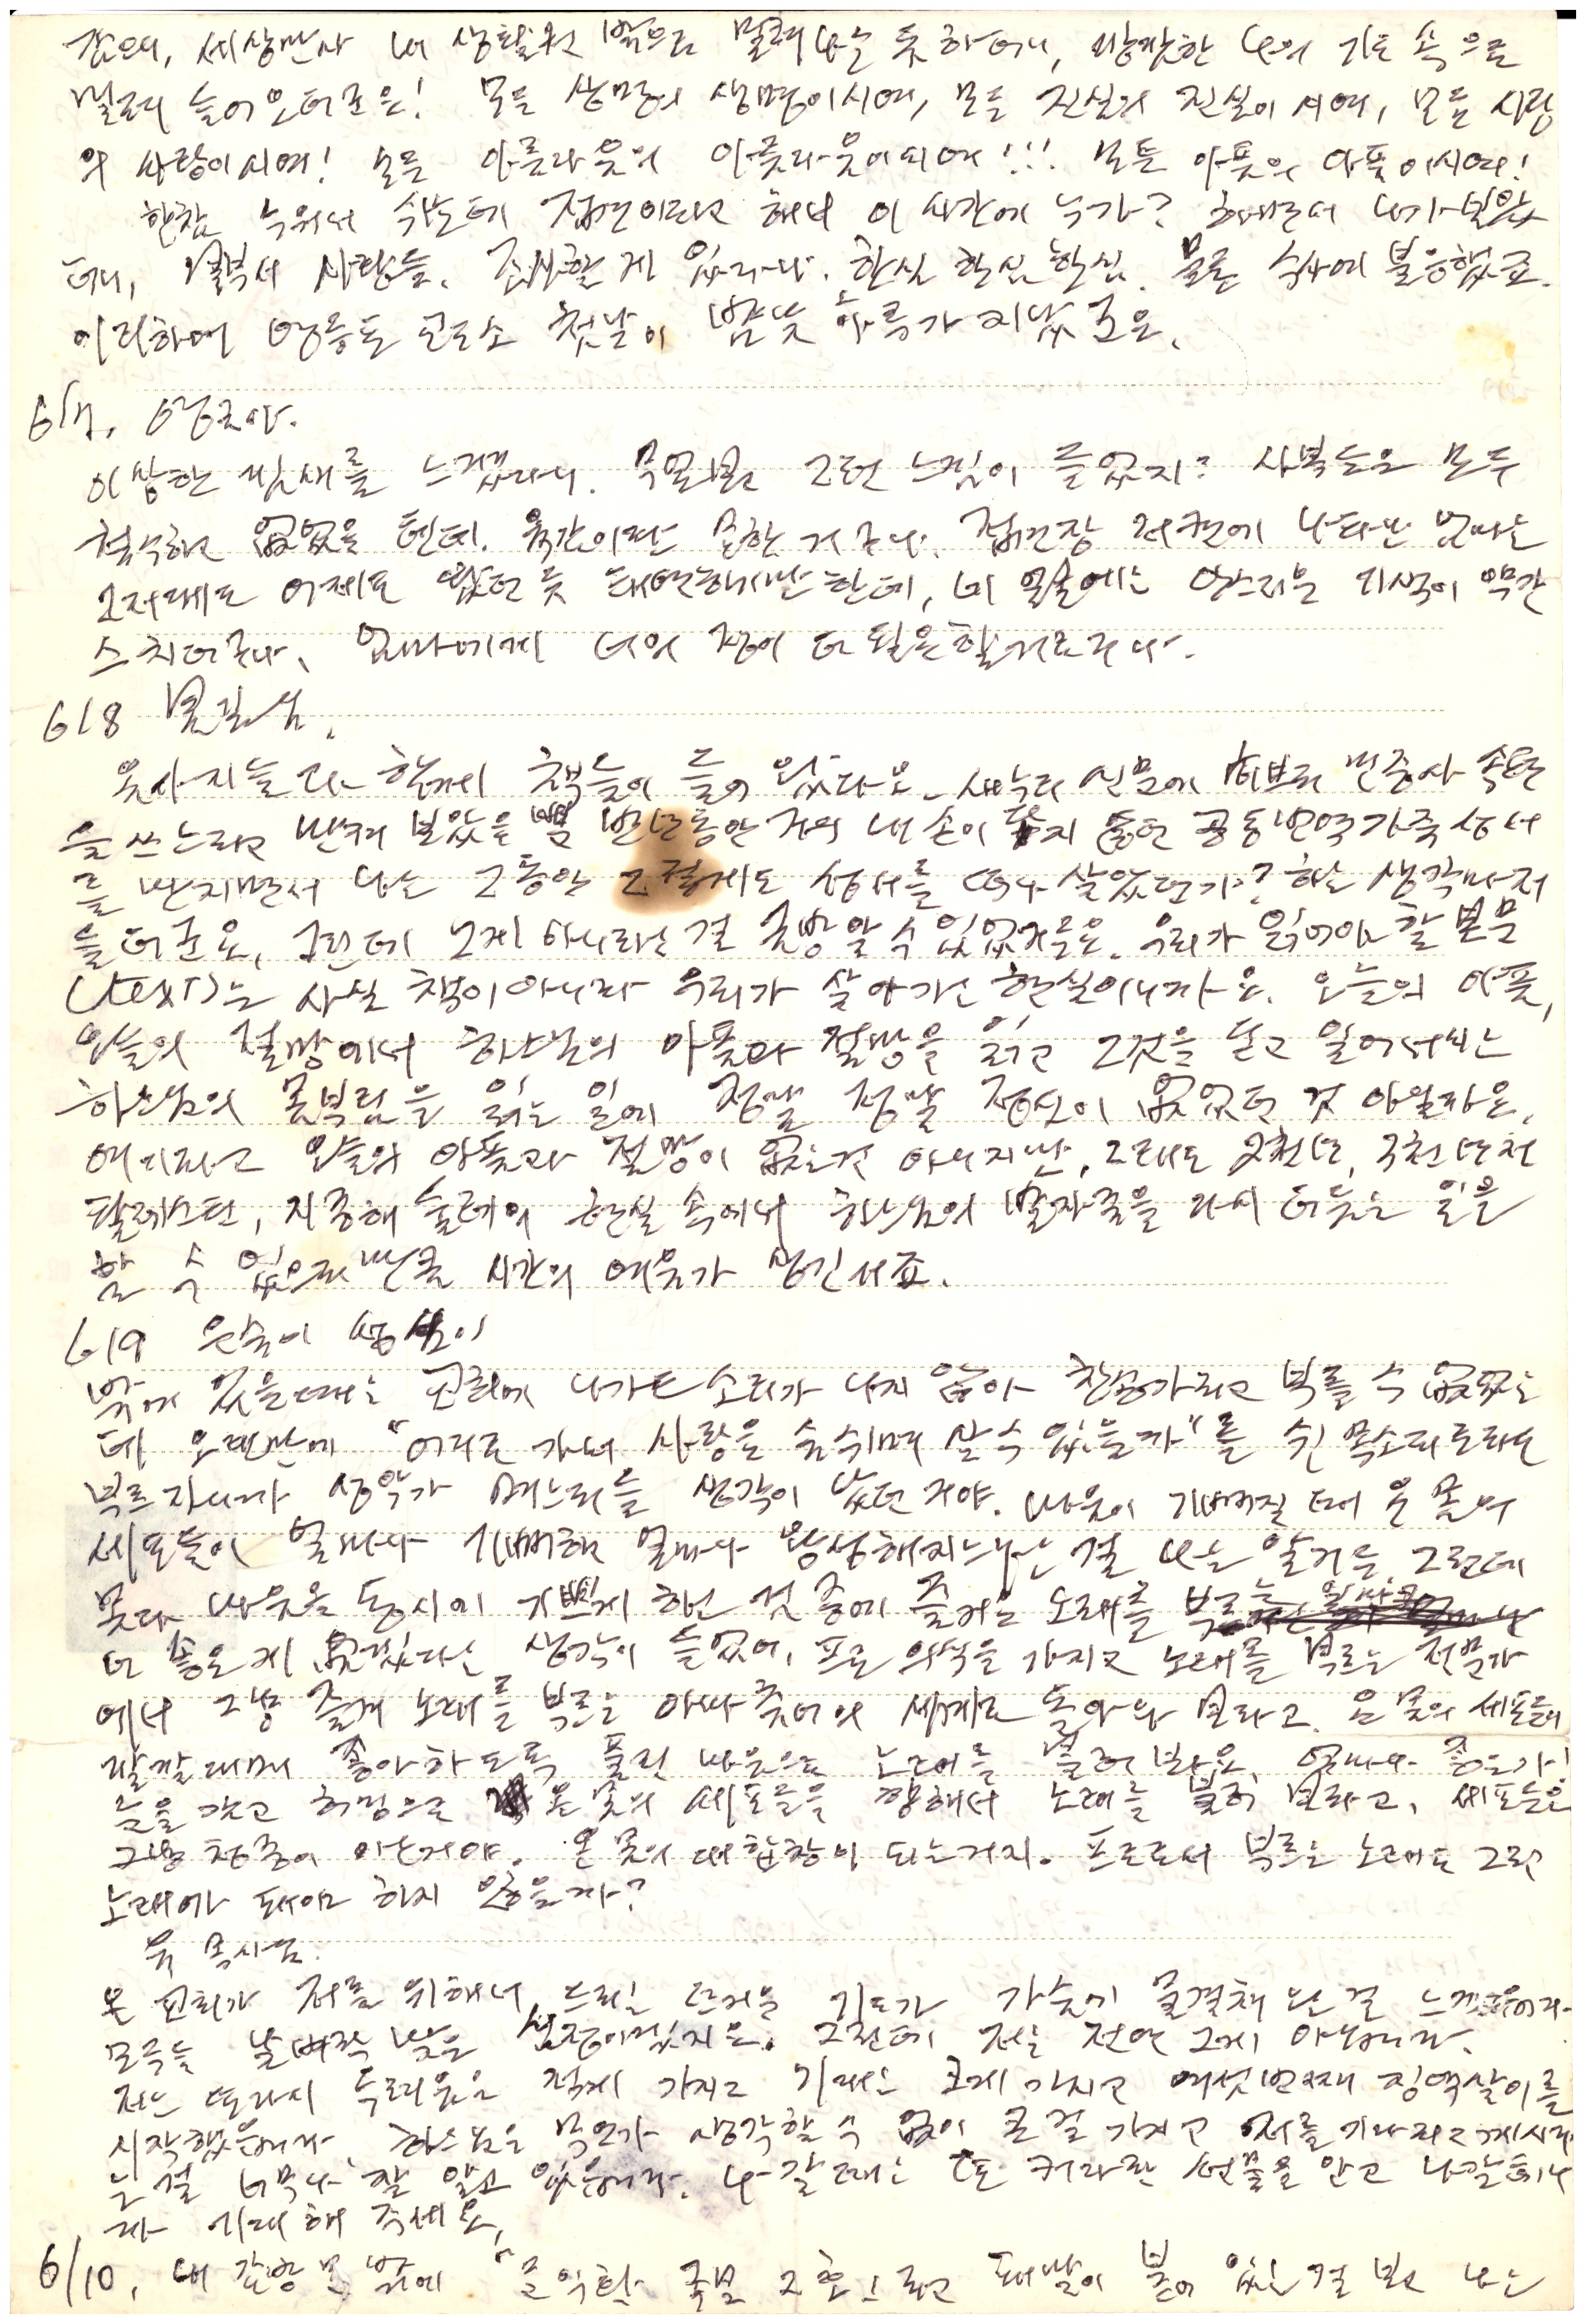 감으니, 세상만사 내 생활권 밖으로 밀려나는 듯 하더니, 나의 기도 속으로
밀려 들어오더군요! 모든 생명의 생명이시여, 모든 진실의 진실이시여, 모든 사랑
의 사랑이시여! 모든 아름다움의 아름다움이시여!!! 모든 아픔의 아픔이시여!
한참 누워서 쉬는데 접견이라고 해서 이 시간에 누가? 하면서 나가보았
더니, 사람들. 조사할 게 있다나. 한심 한심 한심. 물론 수사에 불응했죠.
이리하여 영등포 교도소 첫날이 밤낮 하루가 지났군요.
6/7. 영금아.
이상한 낌새를 느꼈다니. 무언가 그런 느낌이 들었지? 사복들은 모두
철수하고 없었을 텐데. 육감이란 묘한 거구나. 접견장 저편에 나타난 엄마는
그저께도 어제도 왔던 듯 태연하기만 한데, 네 얼굴에는 안스러운 기색이 약간
스치더구나. 엄마에게 너의 정이 더 필요할거로구나.
6/8 봄길님.
옷가지들과 함께 책들이 들어왔다오. 새누리 신문에 히브리 민중사 속편
을 쓰느라고 만져 보았을 뿐 반년 동안 거의 내 손이 가지 않던 공동번역 가죽 성서
를 만지면서 나는 그동안 그렇게도 성서를 떠나 살았던가? 하는 생각마저
들더군요. 그런데 그게 아니라는 걸 금방 알 수 있었거든요. 우리가 읽어야 할 본문
(text)는 사실 책이 아니라 우리가 살아가는 현실이니까요. 오늘의 아픔,
오늘의 절망에서 하느님의 아픔과 절망을 읽고 그것을 딛고 일어서려는
하느님의 몸부림을 읽는 일에 정말 정말 정신이 없었던 것 아닐까요.
여기라고 오늘의 아픔과 절망이 없는건 아니지만, 그래도 2천년, 3천년 전
팔레스틴, 지중해 둘레의 현실 속에서 하느님의 발자국을 다시 더듬는 일을
할 수 있으리 만큼 시간의 여유가 생긴 셈이죠.
6/9 은숙이 성심이
밖에 있을 때는 교회에 나가도 소리가 나지 않아 찬송가라고 부를 수 없었는
데 오랜만에 "어디로 가서 사랑을 숨쉬며 살 수 있을까"를 쉰 목소리로라도
부르자니까 성악가 며느리들 생각이 났던 거야. 마음이 기뻐질 때 온 몸의
세포들이 얼마나 기뻐하고 얼마나 왕성해지느냐는 걸 나는 알거든. 그런데
몸과 마음을 동시에 기쁘게 하는 것 중에 즐거운 노래를 부르는 일보다
더 좋은 게 없겠다는 생각이 들었어. 프로 의식을 가지고 노래를 부르는 전문가
에서 그냥 즐겨 노래를 부르는 아마추어의 세계로 돌아와 보라고. 온 몸의 세포들이
깔깔대며 좋아하도록 풀린 마음으로 노래를 불러 봐요. 얼마나 좋은가!
눈을 감고 허밍으로 온 몸의 세포들을 향해서 노래를 불러 보라고. 세포들은
그냥 청중이 아닌거야. 온 몸의 대합창이 되는거지. 프로로서 부르는 노래도 그런
노래여야 하지 않을까?
유 목사님.
온 교회가 저를 위해서 드리는 뜨거운 기도가 가슴에 물결쳐 오는 걸 느낍니다.
모두들 날벼락 맞은 심정이겠지요. 그런데 저는 전연 그게 아닙니다.
저는 또 다시 두려움은 적게 가지고 기대는 크게 가지고 여섯번째 징역살이를
시작했습니다. 하느님은 무언가 생각할 수 없이 큰 걸 가지고 저를 기다리고 계시다
는 걸 너무나 잘 알고 있습니다. 나갈 때는 또 커다란 선물을 안고 나갈테니
까 기대해 주세요.
6/10. 내 감방 문 밖에 " 2호"라고 패찰이 붙어 있는 걸 보고 나는